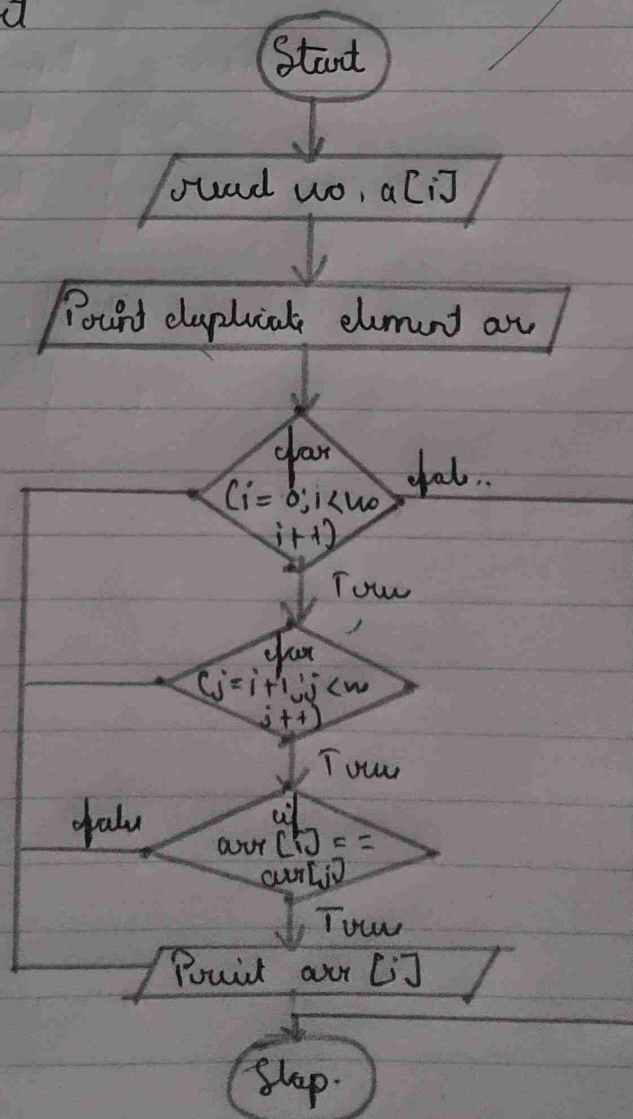 Start
read no, a[i]
Print duplicate element are
for
(i=0; i<no
i++)
fals..
True
for
(j=i+1; j<no
j++)
True
false
if
arr[i]==
arr[j]
True
Print arr[i]
Stop.